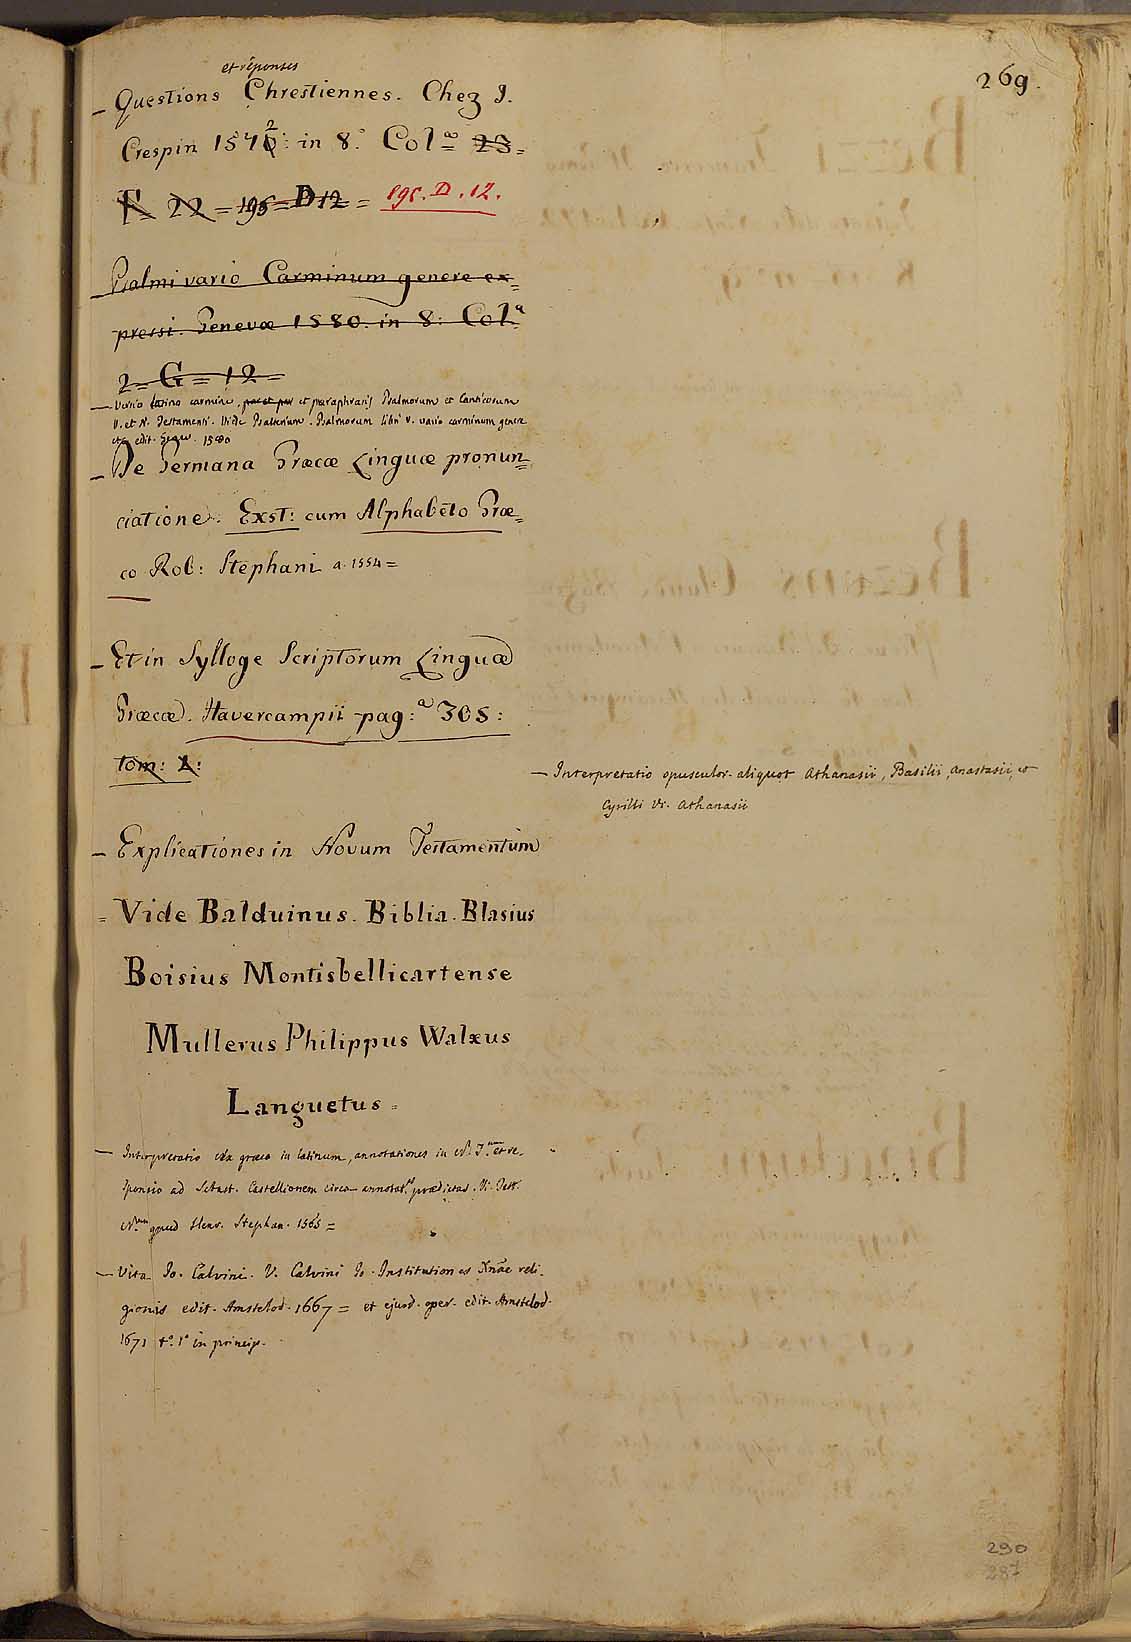 269.
et réponses
– Questions Chrestiennes. Chez J.
Crespin 1572: in 8.° Col.ª 23=
F. 22 = 195 = D 12 = 195. D. 12.
– Psalmi vario Carminum genere ex=
pressi. Genevæ 1580. in 8: Col.ª
2= G = 12 =
– Versio latino carmine, et paraphrasis Psalmorum et Canticorum
V. et N. Testamenti. Vide Psalterium. Psalmorum libri V. vario carminum genere
etc edit. Genev. 1580
– De Germana Græcæ Linguæ pronun=
ciatione. Exst: cum Alphabeto Græ=
co Rob: Stephani a. 1554=
– Et in Sylloge Scriptorum Linguæ
Græcæ. Havercampii pag:ª 305:
tom: 2:
– Interpretatio opusculor. aliquot Athanasii, Basilii, Anastasii, et
Cyrilli Vi. Athanasii
– Explicationes in Novum Testamentum
= Vide Balduinus. Biblia. Blasius
Boisius Montisbellicartense
Mullerus Philippus Walxus
Languetus =
– Interpretatio græco in latinum, annotationes in N. T.um et re-
sponsio ad Sebast. Castellionem circa annotat. prædictas. Vi. Test.
N.um apud Henr. Stephan. 1565 =
– Vita Jo. Calvini. V. Calvini Jo. Institutiones Xnæ reli-
gionis edit. Amstelod. 1667 = et ejusd. oper. edit. Amstelod.
1671 t.° 1° in princip.
290
287